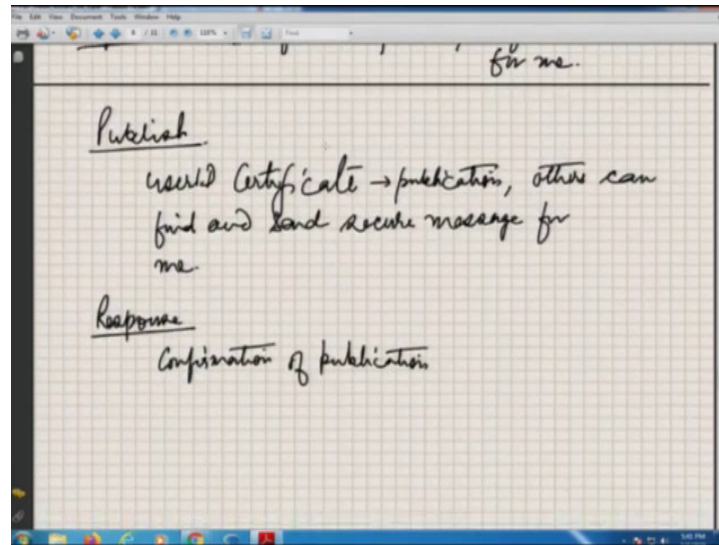 File Edit View Document Tools Window Help
8 / 11 110% Find
for me.
Publish
userId Certificate → publication, others can
find and send secure message for
me.
Response
Confirmation of publication
5:41 PM